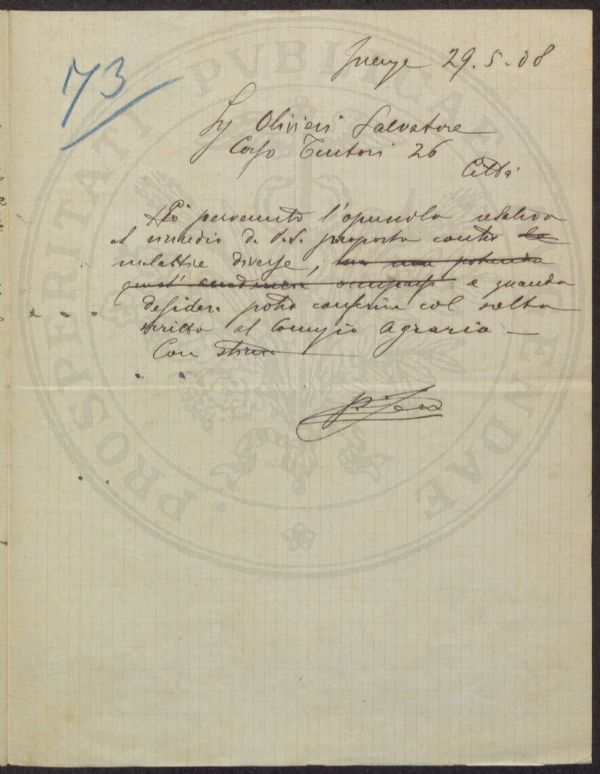 73
Firenze 29.5.08
Sig Olivieri Salvatore
Corso Tintori 26
Città
Ho pervenuto l'opuscolo relativo
al rimedio di V.S. proposto contro le
malattie diverse, ma non potendo
occuparsi e quando
desidera potrà conferire col sotto
scritto al Comizio Agrario —
Con stima
PROSPERITATI PVBLICAE AVGENDAE